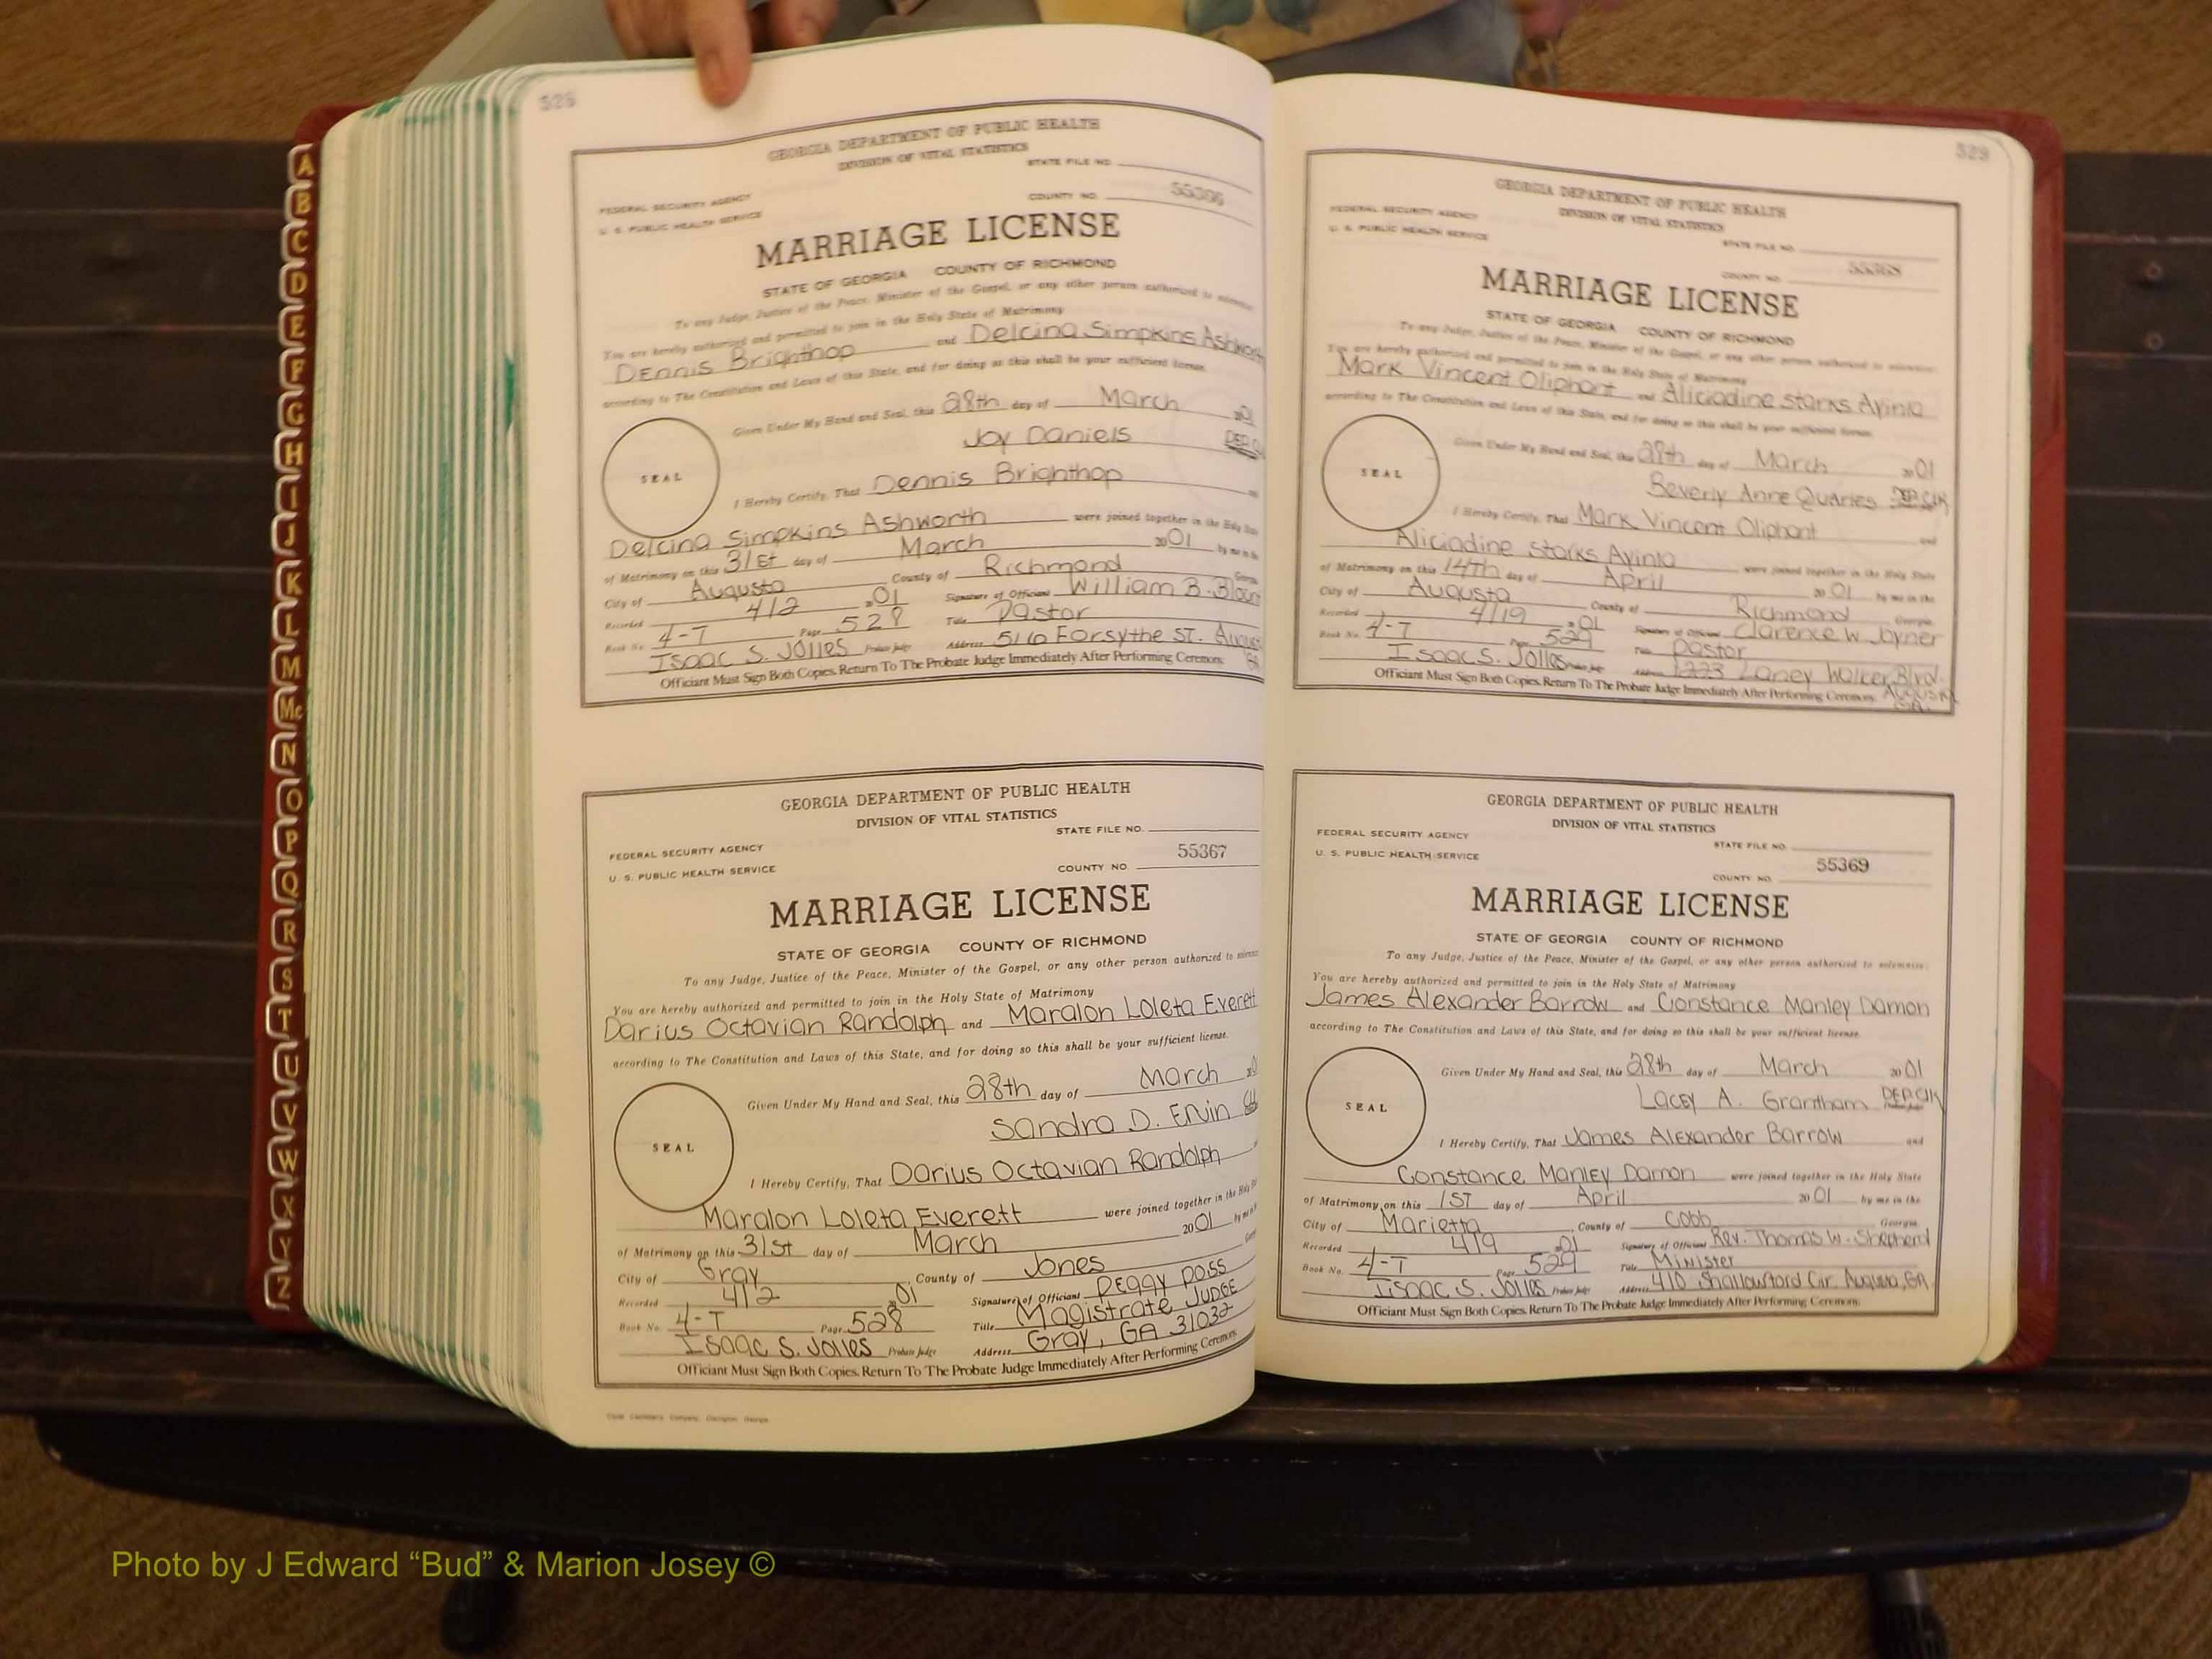 A
B
C
D
E
F
G
H
I
J
K
L
M
Mc
N
O
P
Q
R
S
T
U
V
W
X
Y
Z
528
GEORGIA DEPARTMENT OF PUBLIC HEALTH
DIVISION OF VITAL STATISTICS
STATE FILE NO.
FEDERAL SECURITY AGENCY
COUNTY NO. 55366
U. S. PUBLIC HEALTH SERVICE
MARRIAGE LICENSE
STATE OF GEORGIA COUNTY OF RICHMOND
To any Judge, Justice of the Peace, Minister of the Gospel, or any other person authorized to solemnize
You are hereby authorized and permitted to join in the Holy State of Matrimony
Dennis Brighthop and Delcina Simpkins Ashworth
according to The Constitution and Laws of this State, and for doing so this shall be your sufficient license.
Given Under My Hand and Seal, this 28th day of March 2001
Joy Daniels Dep Cl
SEAL
I Hereby Certify, That Dennis Brighthop and
Delcina Simpkins Ashworth were joined together in the Holy State
of Matrimony on this 31st day of March 2001 by me in the
City of Augusta County of Richmond Georgia
Recorded 4/2 2001 Signature of Officiant William B. Blount
Book No. 4-T Page 528 Title Pastor
Isaac S. Jolles Probate Judge Address 516 Forsythe St. August
GA
Officiant Must Sign Both Copies. Return To The Probate Judge Immediately After Performing Ceremony.
GEORGIA DEPARTMENT OF PUBLIC HEALTH
DIVISION OF VITAL STATISTICS
STATE FILE NO.
FEDERAL SECURITY AGENCY
COUNTY NO. 55367
U. S. PUBLIC HEALTH SERVICE
MARRIAGE LICENSE
STATE OF GEORGIA COUNTY OF RICHMOND
To any Judge, Justice of the Peace, Minister of the Gospel, or any other person authorized to solemnize
You are hereby authorized and permitted to join in the Holy State of Matrimony
Darius Octavian Randolph and Maralon Loleta Everett
according to The Constitution and Laws of this State, and for doing so this shall be your sufficient license.
Given Under My Hand and Seal, this 28th day of March 20
Sandra D. Ervin
SEAL
I Hereby Certify, That Darius Octavian Randolph
Maralon Loleta Everett were joined together in the Holy
of Matrimony on this 31st day of March 2001 by me in
City of Gray County of Jones
Recorded 4/2 2001 Signature of Officiant Peggy Poss
Book No. 4-T Page 528 Title Magistrate Judge
Isaac S. Jolles Probate Judge Address Gray, GA 31032
Officiant Must Sign Both Copies. Return To The Probate Judge Immediately After Performing Ceremony.
529
GEORGIA DEPARTMENT OF PUBLIC HEALTH
DIVISION OF VITAL STATISTICS
STATE FILE NO.
FEDERAL SECURITY AGENCY
COUNTY NO. 55368
U. S. PUBLIC HEALTH SERVICE
MARRIAGE LICENSE
STATE OF GEORGIA COUNTY OF RICHMOND
To any Judge, Justice of the Peace, Minister of the Gospel, or any other person authorized to solemnize
You are hereby authorized and permitted to join in the Holy State of Matrimony
Mark Vincent Oliphant and Aliciadine Starks Ayinla
according to The Constitution and Laws of this State, and for doing so this shall be your sufficient license.
Given Under My Hand and Seal, this 28th day of March 2001
Beverly Anne Quarles Dep Clk
SEAL
I Hereby Certify, That Mark Vincent Oliphant and
Aliciadine Starks Ayinla were joined together in the Holy State
of Matrimony on this 14th day of April 2001 by me in the
City of Augusta County of Richmond Georgia
Recorded 4/19 2001 Signature of Officiant Clarence W. Joyner
Book No. 4-T Page 529 Title Pastor
Isaac S. Jolles Probate Judge Address 1223 Laney Walker Blvd.
Augusta
GA.
Officiant Must Sign Both Copies. Return To The Probate Judge Immediately After Performing Ceremony.
GEORGIA DEPARTMENT OF PUBLIC HEALTH
DIVISION OF VITAL STATISTICS
STATE FILE NO.
FEDERAL SECURITY AGENCY
COUNTY NO. 55369
U. S. PUBLIC HEALTH SERVICE
MARRIAGE LICENSE
STATE OF GEORGIA COUNTY OF RICHMOND
To any Judge, Justice of the Peace, Minister of the Gospel, or any other person authorized to solemnize
You are hereby authorized and permitted to join in the Holy State of Matrimony
James Alexander Barrow and Constance Manley Damon
according to The Constitution and Laws of this State, and for doing so this shall be your sufficient license.
Given Under My Hand and Seal, this 28th day of March 2001
Lacey A. Grantham Dep Clk
SEAL
I Hereby Certify, That James Alexander Barrow and
Constance Manley Damon were joined together in the Holy State
of Matrimony on this 1st day of April 2001 by me in the
City of Marietta County of Cobb Georgia
Recorded 4/9 2001 Signature of Officiant Rev. Thomas W. Shepherd
Book No. 4-T Page 529 Title Minister
Isaac S. Jolles Probate Judge Address 410 Shallowford Cir. Augusta, GA
Officiant Must Sign Both Copies. Return To The Probate Judge Immediately After Performing Ceremony.
Photo by J Edward “Bud” & Marion Josey ©